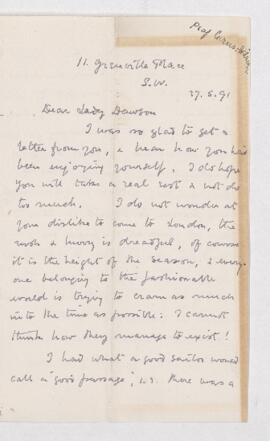 Prof Carus-Wilson
11. Grenville Place
S.W.
27.5.91
Dear Lady Dawson
I was so glad to get a
letter from you, & hear how you had
been enjoying yourself. I do hope
you will take a real rest & not do
too much. I do not wonder at
your dislike to come to London, the
rush & hurry is dreadful, of course
it is the height of the season, & every-
one belonging to the fashionable
world is trying to cram as much
into the time as possible: I cannot
think how they manage to exist!
I had what a good sailor would
call a "good passage", i.e. there was a